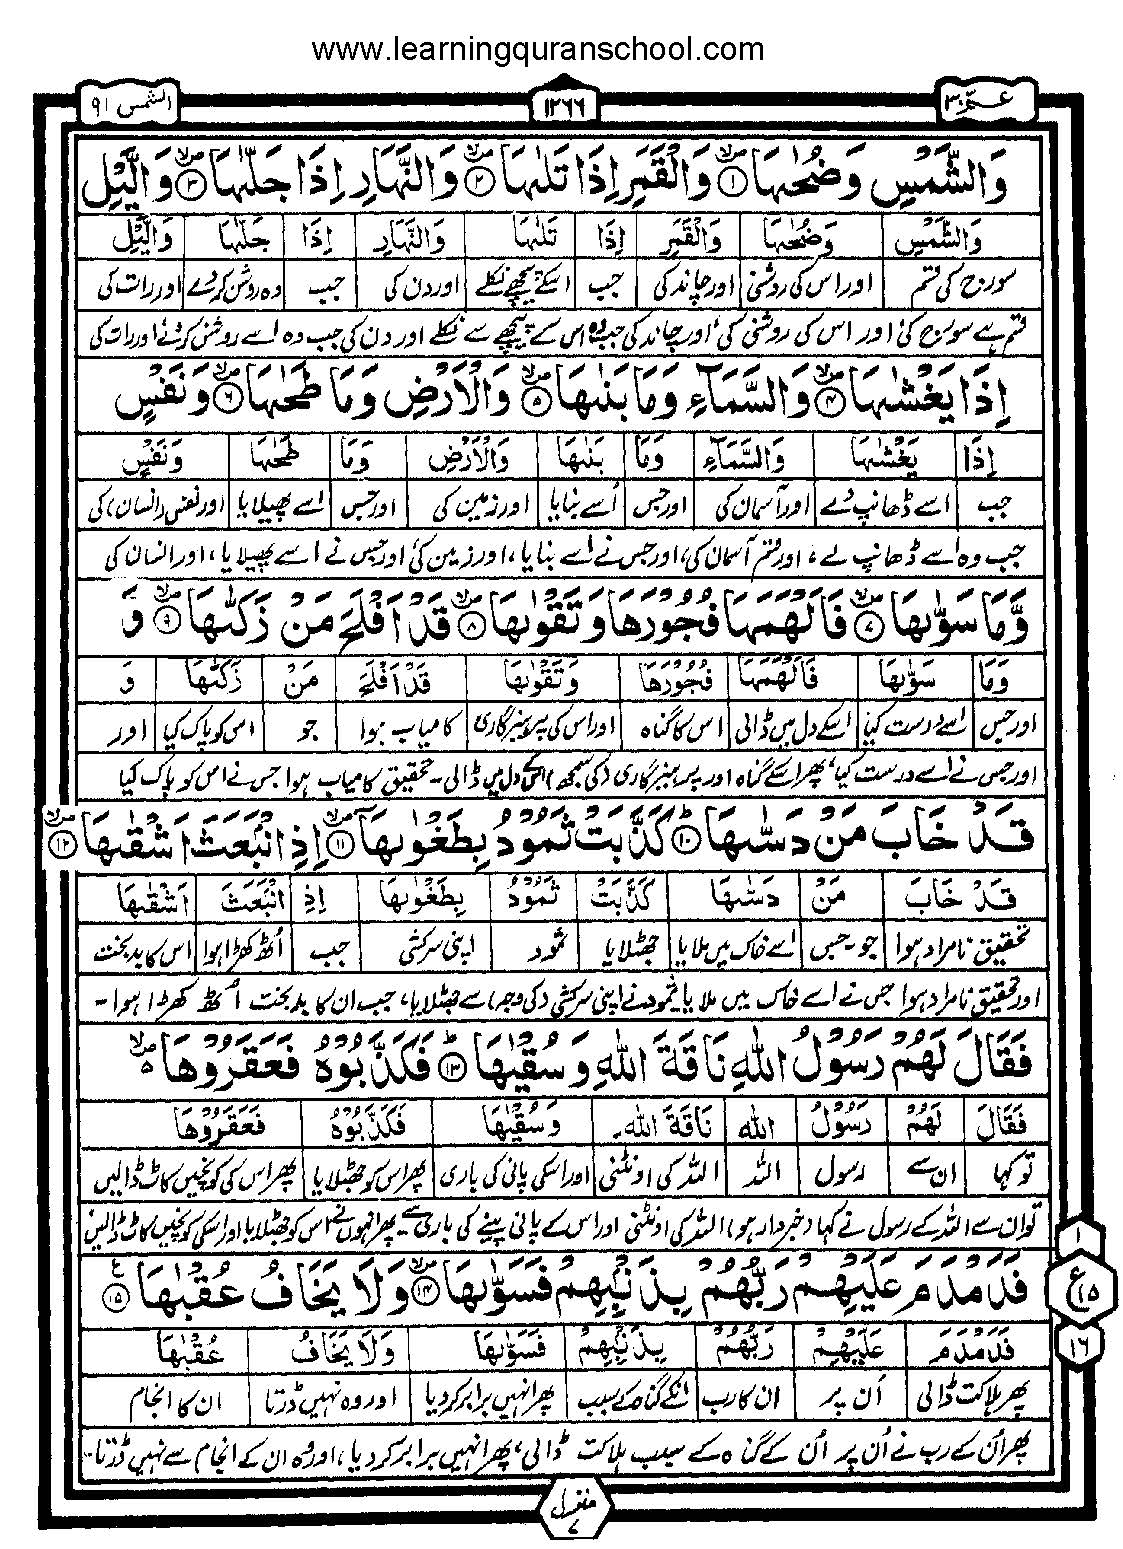 www.learningquranschool.com
عم ٣٠
١٢٦٦
الشمس ٩١
وَالشَّمْسِ وَضُحٰىهَا ۝١ وَالْقَمَرِ اِذَا تَلٰىهَا ۝٢ وَالنَّهَارِ اِذَا جَلّٰىهَا ۝٣ وَالَّيْلِ
وَالشَّمْسِ وَضُحٰىهَا وَالْقَمَرِ اِذَا تَلٰىهَا وَالنَّهَارِ اِذَا جَلّٰىهَا وَالَّيْلِ
سورج کی قسم اور اس کی روشنی اور چاند کی جب اسکے پیچھے نکلے اور دن کی جب وہ روشن کر دے اور رات کی
قسم ہے سورج کی اور اس کی روشنی کی، اور چاند کی جب وہ اس کے پیچھے سے نکلے اور دن کی جب وہ اسے روشن کر دے، اور رات کی
اِذَا يَغْشٰىهَا ۝٤ وَالسَّمَآءِ وَمَا بَنٰىهَا ۝٥ وَالْاَرْضِ وَمَا طَحٰىهَا ۝٦ وَنَفْسٍ
اِذَا يَغْشٰىهَا وَالسَّمَآءِ وَمَا بَنٰىهَا وَالْاَرْضِ وَمَا طَحٰىهَا وَنَفْسٍ
جب اسے ڈھانپ لے اور آسمان کی اور جس اُسے بنایا اور زمین کی اور جس اسے پھیلایا اور نفس (انسان) کی
جب وہ اسے ڈھانپ لے، اور قسم آسمان کی، اور جس نے اسے بنایا، اور زمین کی اور جس نے اسے پھیلایا، اور انسان کی
وَّمَا سَوّٰىهَا ۝٧ فَاَلْهَمَهَا فُجُوْرَهَا وَتَقْوٰىهَا ۝٨ قَدْ اَفْلَحَ مَنْ زَكّٰىهَا ۝٩ وَ
وَمَا سَوّٰىهَا فَاَلْهَمَهَا فُجُوْرَهَا وَتَقْوٰىهَا قَدْ اَفْلَحَ مَنْ زَكّٰىهَا وَ
اور جس اسے درست کیا اسکے دل میں ڈالی اس کا گناہ اور اس کی پرہیزگاری کامیاب ہوا جو اس کو پاک کیا اور
اور جس نے اسے درست کیا، پھر اسکے گناہ اور پرہیزگاری (کی سمجھ) اسکے دل میں ڈالی ۔ تحقیق کامیاب ہوا جس نے اس کو پاک کیا
قَدْ خَابَ مَنْ دَسّٰىهَا ۝١٠ كَذَّبَتْ ثَمُوْدُ بِطَغْوٰىهَآ ۝١١ اِذِ انْۢبَعَثَ اَشْقٰىهَا ۝١٢
قَدْ خَابَ مَنْ دَسّٰىهَا كَذَّبَتْ ثَمُوْدُ بِطَغْوٰىهَا اِذِ انْۢبَعَثَ اَشْقٰىهَا
تحقیق نامراد ہوا جو ۔ جس اسے خاک میں ملایا جھٹلایا ثمود اپنی سرکشی جب اُٹھ کھڑا ہوا اس کا بدبخت
اور تحقیق نامراد ہوا جس نے اسے خاک میں ملایا ثمود نے اپنی سرکشی (کی وجہ) سے جھٹلایا، جب ان کا بدبخت اُٹھ کھڑا ہوا ۔
فَقَالَ لَهُمْ رَسُوْلُ اللّٰهِ نَاقَةَ اللّٰهِ وَسُقْيٰهَا ۝١٣ فَكَذَّبُوْهُ فَعَقَرُوْهَا
فَقَالَ لَهُمْ رَسُوْلُ اللّٰهِ نَاقَةَ اللّٰهِ وَسُقْيٰهَا فَكَذَّبُوْهُ فَعَقَرُوْهَا
تو کہا ان سے رسول اللہ اللہ کی اونٹنی اور اسکی پانی کی باری پھر اس کو جھٹلایا پھر اس کی کونچیں کاٹ ڈالیں
تو ان سے اللہ کے رسول نے کہا (خبردار ہو) اللہ کی اونٹنی اور اس کے پانی پینے کی باری سے ۔ پھر انہوں نے اس کو جھٹلایا اور اسکی کونچیں کاٹ ڈالیں
فَدَمْدَمَ عَلَيْهِمْ رَبُّهُمْ بِذَنْۢبِهِمْ فَسَوّٰىهَا ۝١٤ وَلَا يَخَافُ عُقْبٰهَا ۝١٥
١
ع ١٥
١٦
فَدَمْدَمَ عَلَيْهِمْ رَبُّهُمْ بِذَنْۢبِهِمْ فَسَوّٰىهَا وَلَا يَخَافُ عُقْبٰهَا
پھر ہلاکت ڈالی اُن پر ان کا رب انکے گناہ کے سبب پھر انہیں برابر کر دیا اور وہ نہیں ڈرتا ان کا انجام
پھر اُن کے رب نے اُن پر اُن کے گناہ کے سبب ہلاکت ڈالی، پھر انہیں برابر کر دیا، اور وہ ان کے انجام سے نہیں ڈرتا ۔
منزل ٧